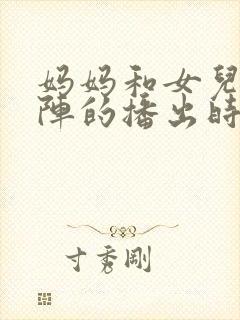 妈妈和女兒
陣的播出時
寸秀剛